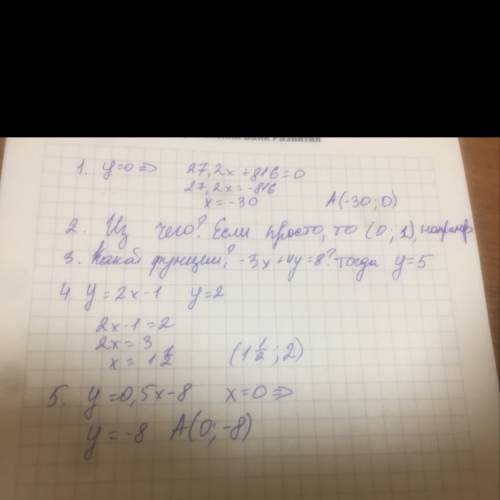 1. y=0 => 27,2x+816=0
27,2x=-816
x=-30 A(-30; 0)
2. Из чего? Если просто, то (0; 1), например
3. Какой функции? -3x+4y=8? Тогда y=5
4. y=2x-1 y=2
2x-1=2
2x=3
x=1 1/2 (1 1/2; 2)
5. y=0,5x-8 x=0 =>
y=-8 A(0; -8)